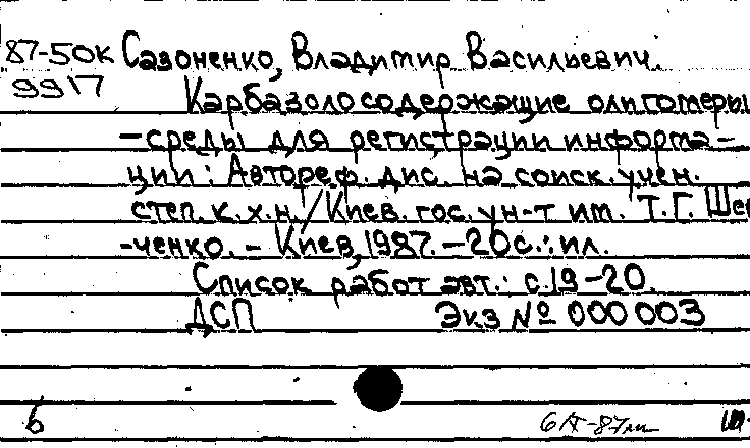 87-50к Сазоненко, Владимир Васильевич.
9917 Карбазолосодержащие олигомеры
-среды для регистрации информа-
ции : Автореф. дис. на соиск. учен.
степ. к. х. н. / Киев. гос. ун-т им. Т. Г. Шев
-ченко. - Киев, 1987. - 20 с. : ил.
Список работ авт.: с. 19-20.
ДСП Экз № 000 003
б